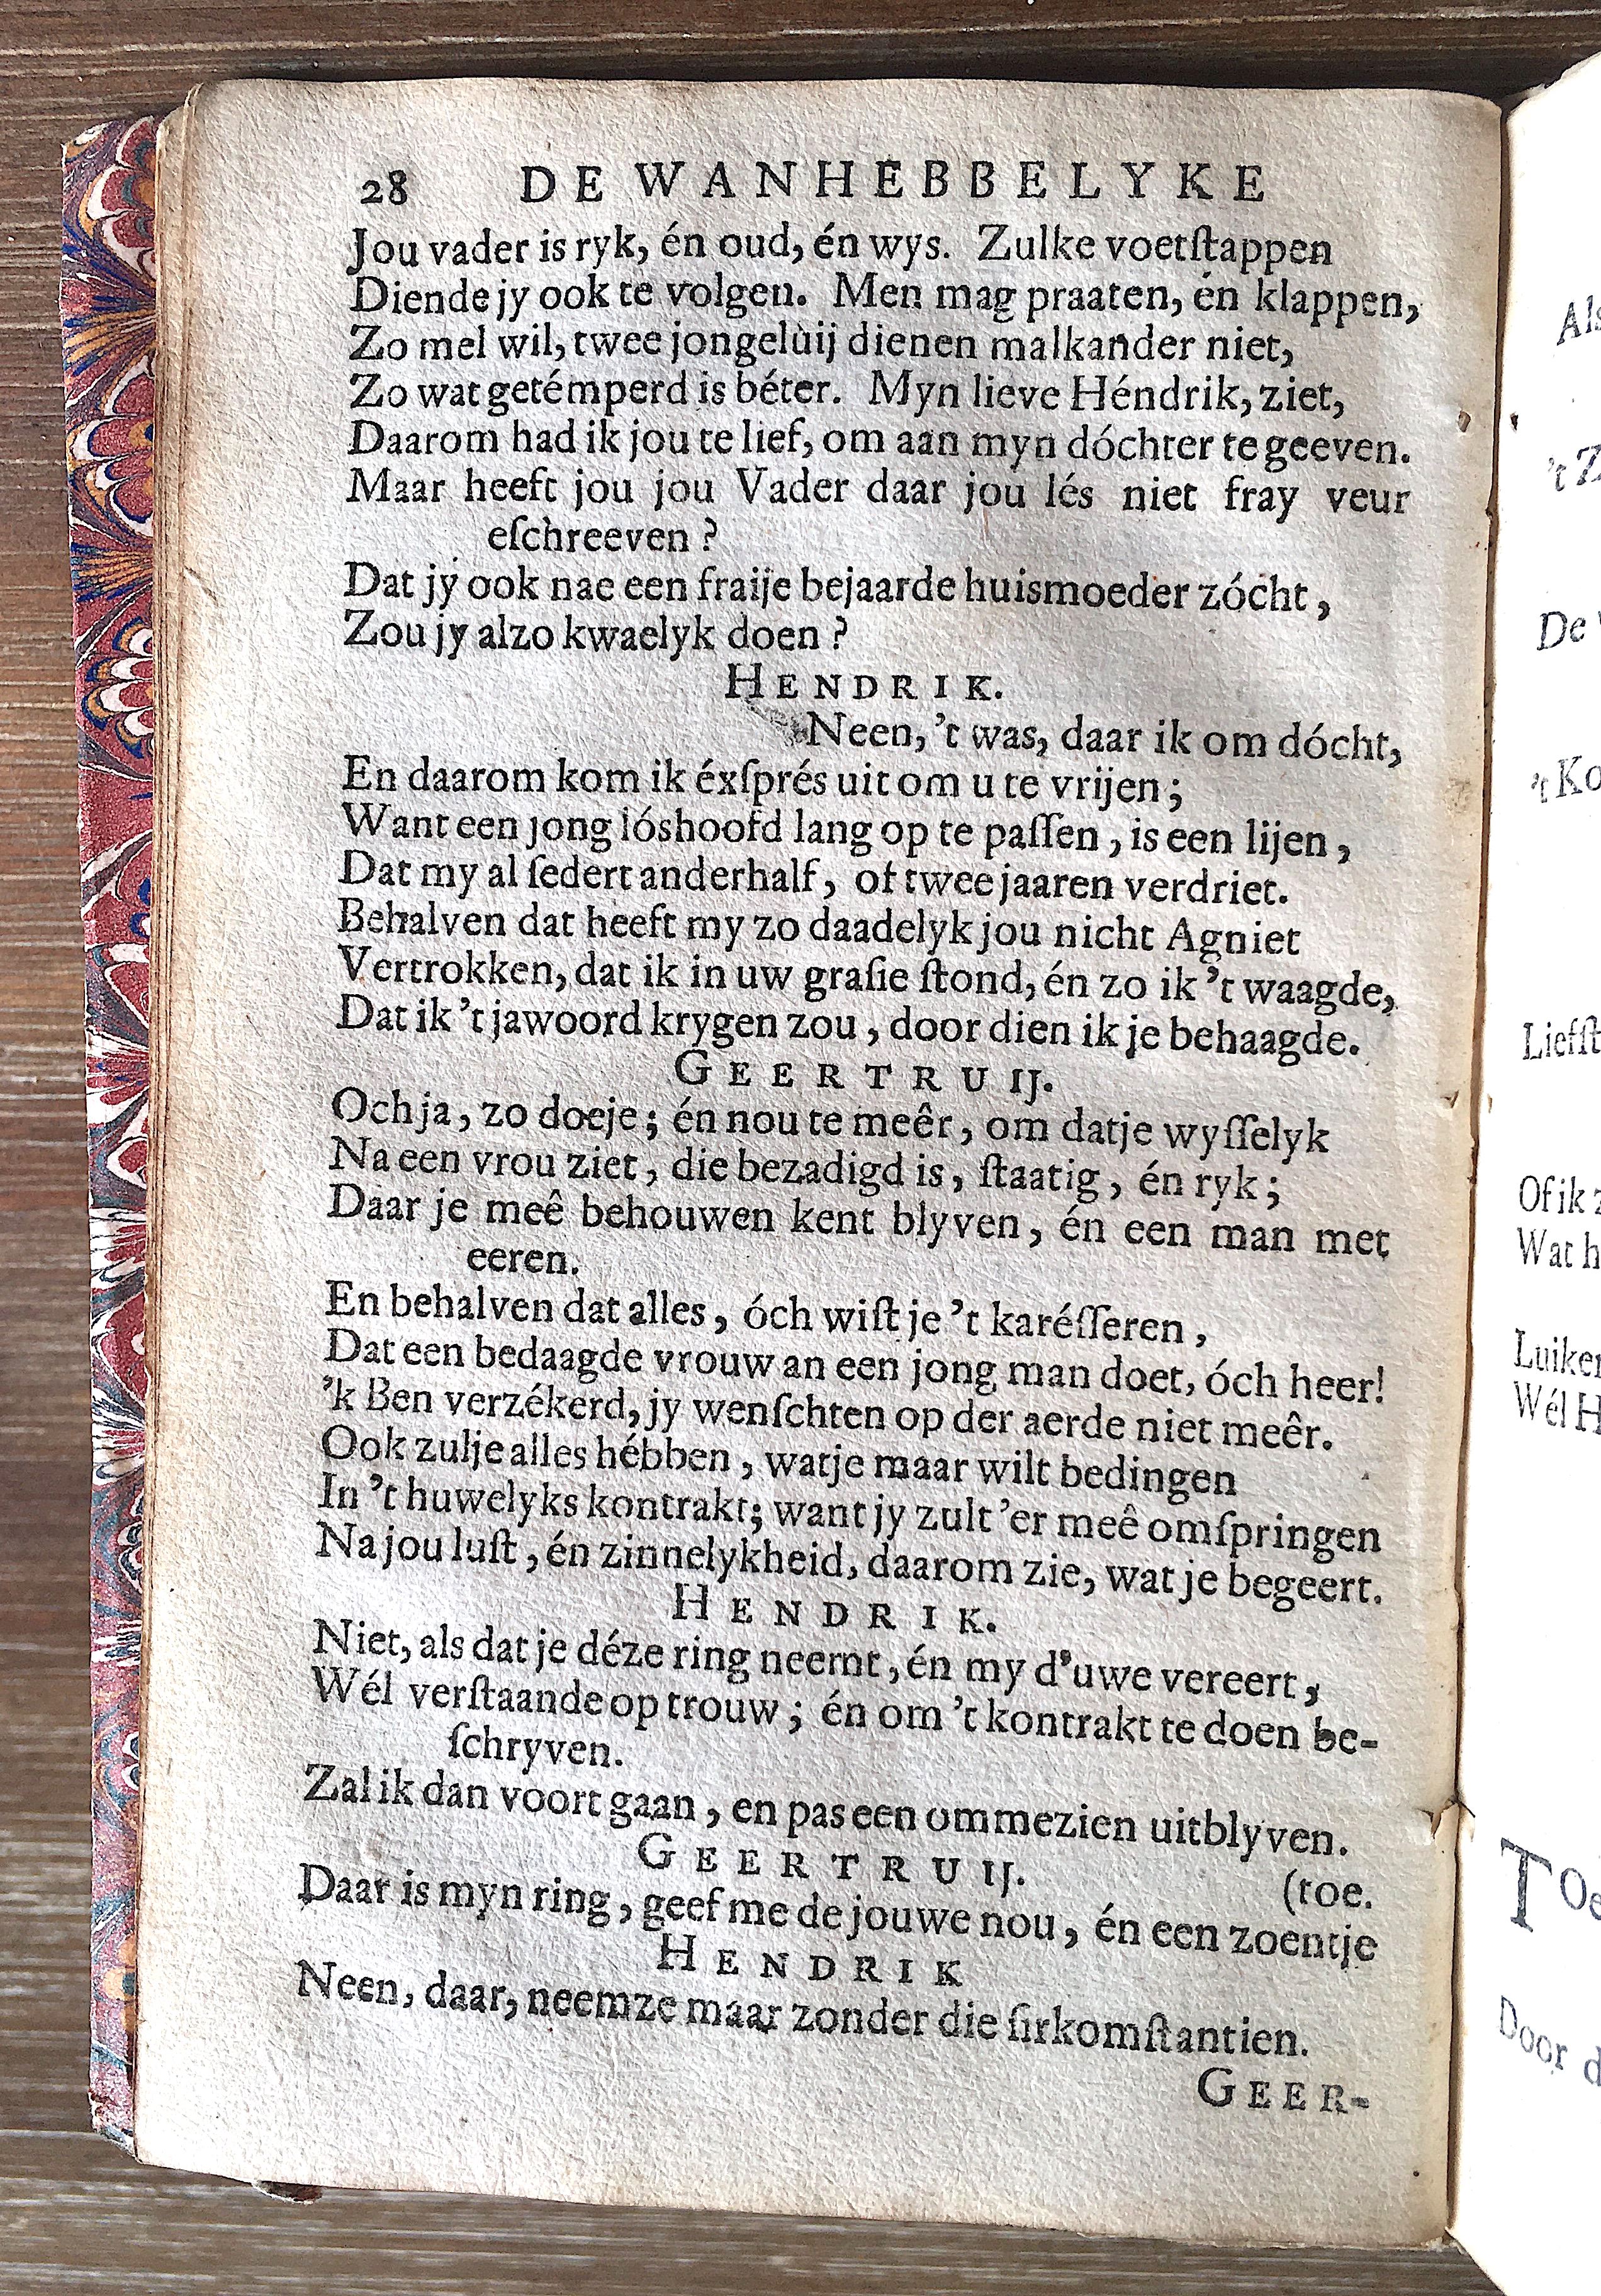 28 DE WANHEBBELYKE
Jou vader is ryk, én oud, én wys. Zulke voetſtappen
Diende jy ook te volgen. Men mag praaten, én klappen,
Zo mel wil, twee jongelùij dienen malkander niet,
Zo wat getémperd is béter. Myn lieve Héndrik, ziet,
Daarom had ik jou te lief, om aan myn dóchter te geeven.
Maar heeft jou jou Vader daar jou lés niet fray veur
eſchreeven?
Dat jy ook nae een fraije bejaarde huismoeder zócht,
Zou jy alzo kwaelyk doen?
HENDRIK.
Neen, 't was, daar ik om dócht,
En daarom kom ik éxſprés uit om u te vrijen;
Want een jong lóshoofd lang op te paſſen, is een lijen,
Dat my al ſedert anderhalf, of twee jaaren verdriet.
Behalven dat heeft my zo daadelyk jou nicht Agniet
Vertrokken, dat ik in uw graſie ſtond, én zo ik 't waagde,
Dat ik 't jawoord krygen zou, door dien ik je behaagde.
GEERTRUIJ.
Och ja, zo doeje; én nou te meêr, om datje wyſſelyk
Na een vrou ziet, die bezadigd is, ſtaatig, én ryk;
Daar je meê behouwen kent blyven, én een man met
eeren.
En behalven dat alles, óch wiſt je 't karéſſeren,
Dat een bedaagde vrouw an een jong man doet, óch heer!
'k Ben verzékerd, jy wenſchten op der aerde niet meêr.
Ook zulje alles hébben, watje maar wilt bedingen
In 't huwelyks kontrakt; want jy zult 'er meê omſpringen
Na jou luſt, én zinnelykheid, daarom zie, wat je begeert.
HENDRIK.
Niet, als dat je déze ring neemt, én my d'uwe vereert,
Wél verſtaande op trouw; én om 't kontrakt te doen be-
ſchryven.
Zal ik dan voort gaan, en pas een ommezien uitblyven.
GEERTRUIJ. (toe.
Daar is myn ring, geef me de jouwe nou, én een zoentje
HENDRIK
Neen, daar, neemze maar zonder die ſirkomſtantien.
GEER-
Als
't Z
De
't Ko
Liefſt
Of ik
Wat h
Luiker
Wél H
TOe
Door d